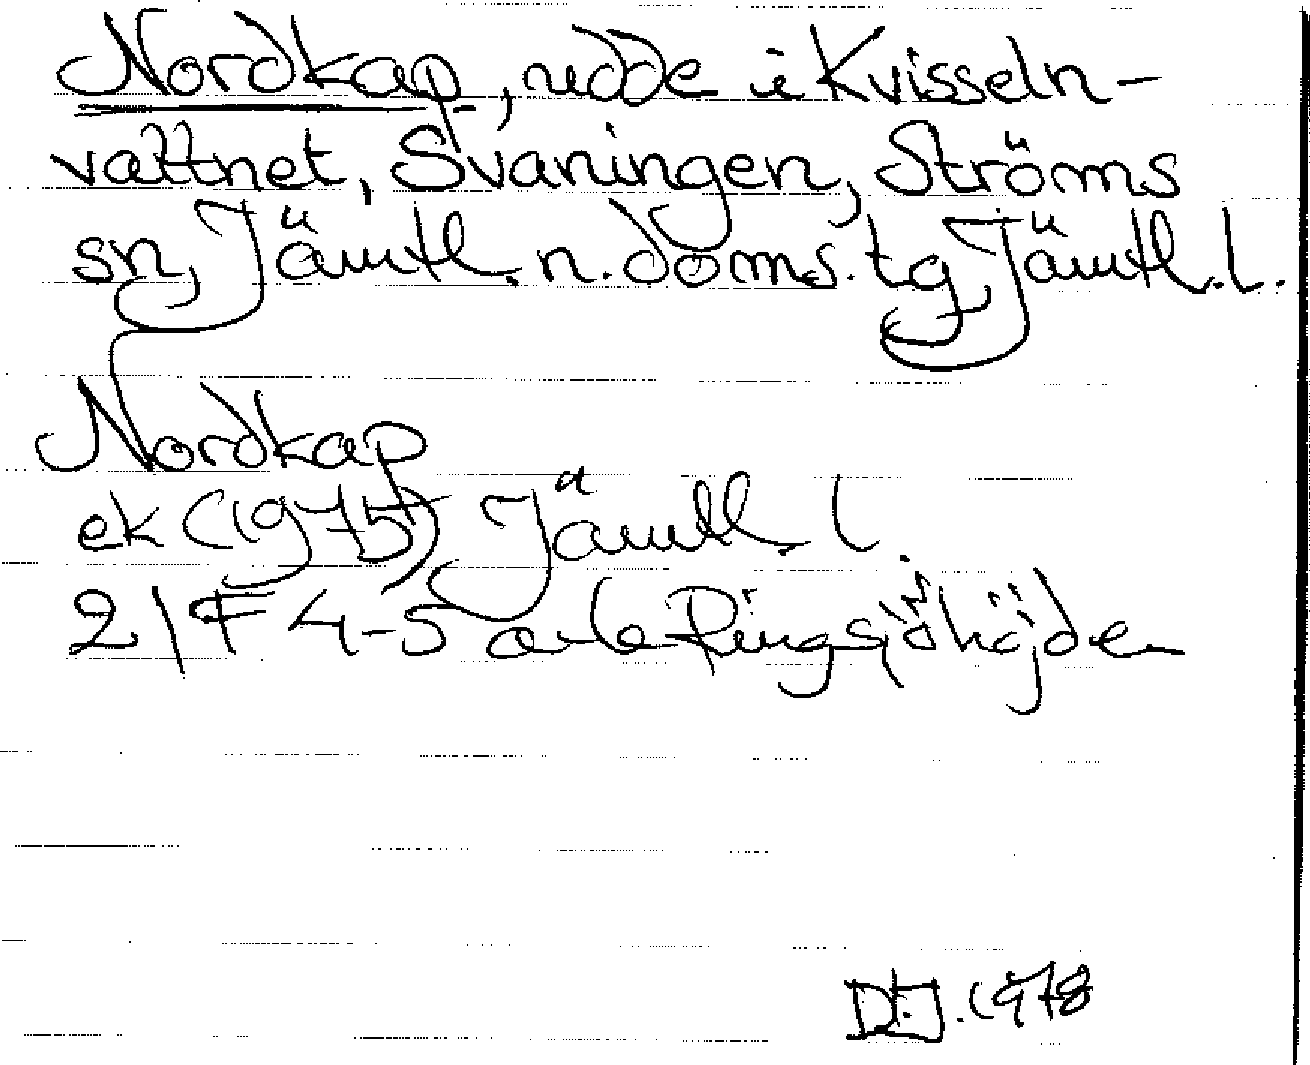 Nordkap, udde i Kvisseln-
vattnet, Svaningen, Ströms
sn, Jämtl. n. doms. tg Jämtl. l.
Nordkap
ek (1975) Jämtl. l.
21F 4-5 a-b Ringsjöhöjden
1978